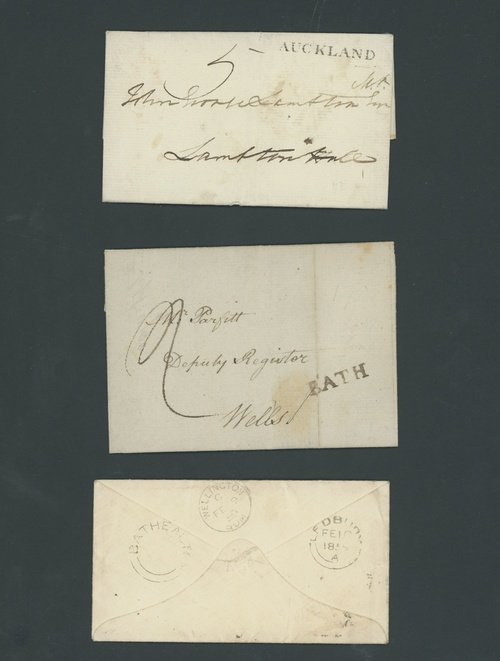 AUCKLAND
5
M.P.
John George Lambton Esqr
Lambton Hall
Mr. Parfitt
2
Deputy Register
BATH
Wells
WELLINGTON
BATHEA
LEDBURY
FE10
18
A